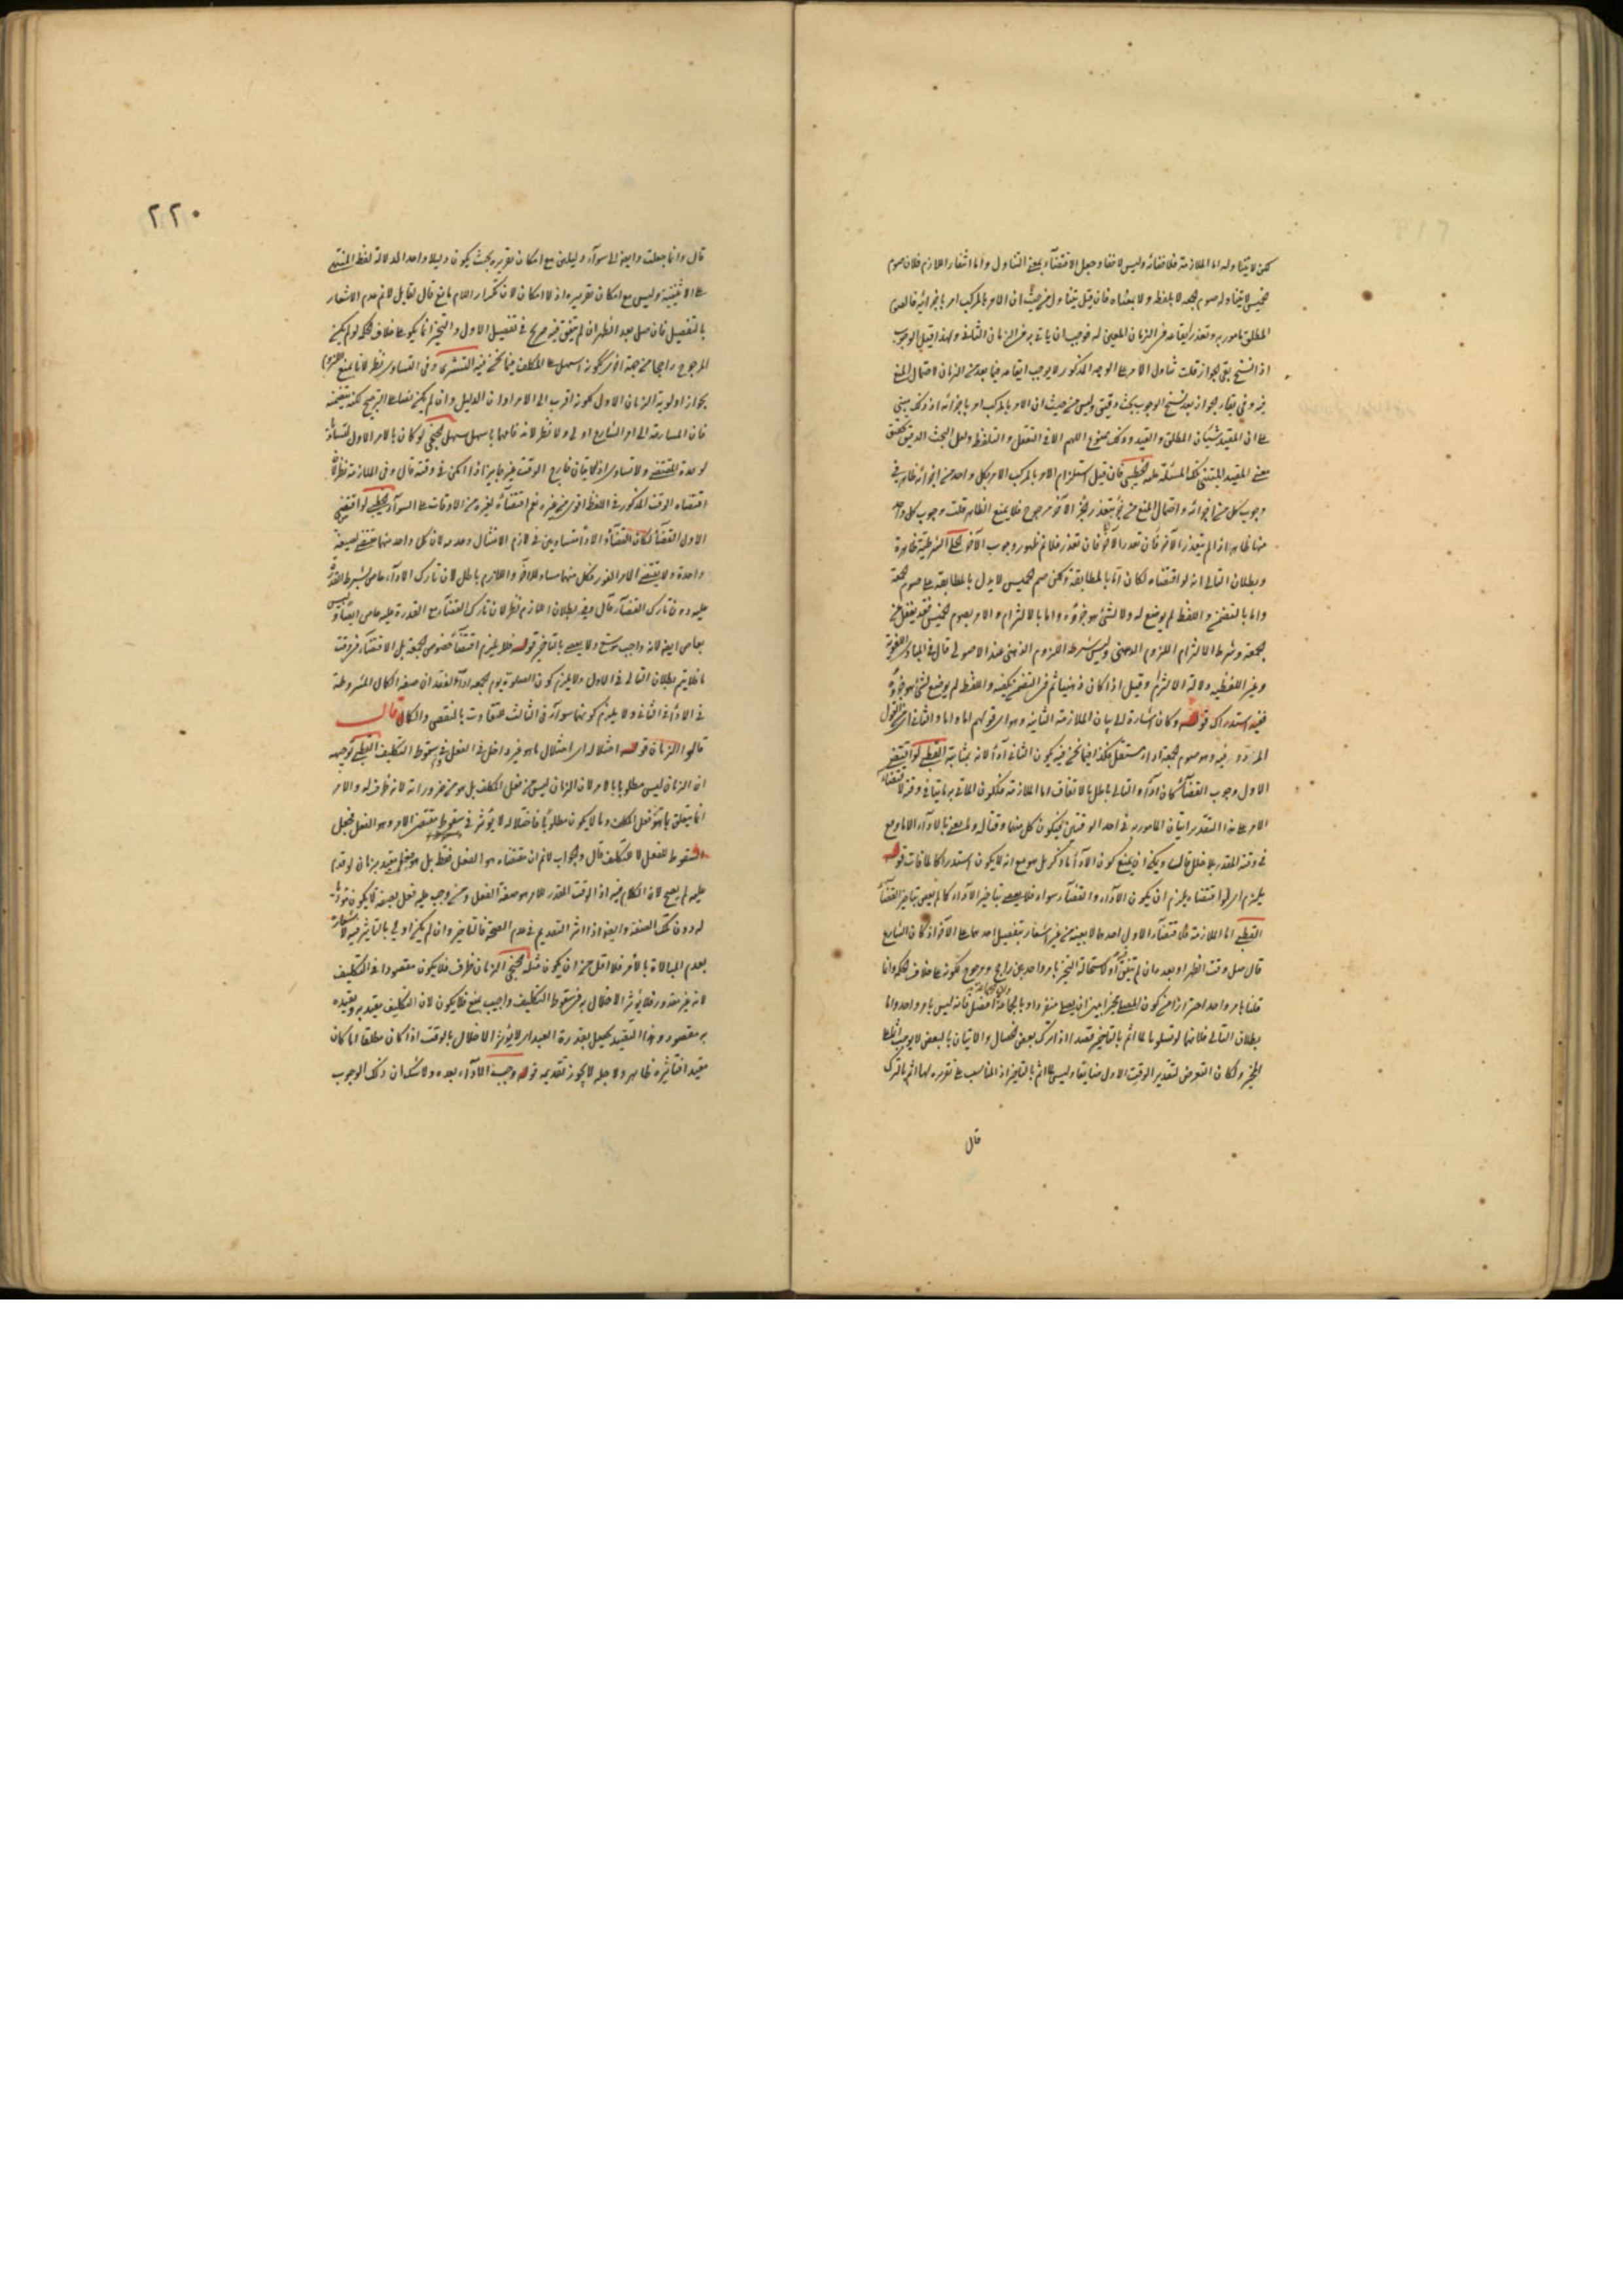 لكن لا يتناوله اما الملازمة فلاقتضائه وليس لاقضا وجعل الاقتضاء بمعنى التناول واما انتفاء اللازم فلان صوم
الخميس لا يتناول صوم الجمعة لا بلفظه ولا بمعناه فان قيل يتناول من حيث ان الامر بالمركب امر باجزائه فالصوم
المطلق مأمور به وتعذر ايقاعه في الزمان المعين له فوجب ان ياتي به في الزمان الثاني وبهذا قيل الوجوب
اذا نسخ بقي الجواز قلت تناول الامر على الوجه المذكور لا يوجب ايقاعه فيما بعد من الزمان لاحتمال المنع
فيه وفي بقاء الجواز بعد نسخ الوجوب بحث دقيق وليس من حيث ان الامر بالمركب امر باجزائه اذ ذلك مبني
على ان المقيد شيئان المطلق والقيد وذلك ممنوع اللهم الا في التعقل والتلفظ ولعل البحث الدقيق تحقيق
معنى المقيد المبتني تلك المسئلة عليه الخطيبي فان قيل استلزام الامر بالمركب الامر بكل واحد من اجزائه ظاهر في
وجوب كل من اجزائه واحتمال المنع من جزء بتعذر الجزء الآخر مرجوح فلا يمنع الظاهر قلت وجوب كل واحد
منها ظاهر اذا لم يتعذر الآخر فان تعذر الآخر فان تعذر فلا نم ظهور وجوب الآخر الحلي الشرطية ظاهرة
وبطلان التالي انه لو اقتضاه لكان اما بالمطابقة ولكن صم الخميس لا يدل بالمطابقة على صوم الجمعة
واما بالتضمن واللفظ لم يوضع له ولا لشئ هو جزؤه واما بالالتزام والامر بصوم الخميس فقد يغفل عن
الجمعة وشرط الالتزام اللزوم الذهني وليس شرطه اللزوم الذهني عند الاصولي قال في المبادي اللغوية
وغير اللفظية دلالة الالتزام وقيل اذا كان ذهنيا ثم في التضمن يكفيه واللفظ لم يوضع لشئ هو جزؤه
ففيه استدراك قوله وكان اشارة الى بيان الملازمة الثانية وهو اي قولهم اما واما والثاني اي القول
المردود فيه وهو صوم الجمعة اداء مستقل فكذا فيما نحن فيه يكون الثاني اداء لانه بمثابته القطبي لو اقتضى
الاول وجوب القضاء لكان اداء والتالي باطل بالاتفاق اما الملازمة فلكون الماتي به ماتيا في وقته لاقتضاء
الامر على هذا التقدير اتيان المامور به في احد الوقتين فيكون كل منهما وقتا له ولا معنى بالاداء الا ما وقع
في وقته المقدر بلا خلل قال ويمكن ان يمنع كون الاداء ما ذكر بل هو مع انه لا يكون استدراكا لما فات قوله
يلزم اي لو اقتضاه يلزم ان يكون الاداء والقضاء سواء فلا يعصى بتاخير الاداء كما لم يعص بتاخير القضاء
القطبي اما الملازمة فلاقتضاء الاول احدهما لا بعينه من غير اشعار بتفصيل احدهما على الآخر اذ كان الشارع
قال صل وقت الظهر او بعده وان لم يتفق اداء لاستحالة التخيير بامر واحد بين راجح ومرجوح لكونه على خلاف الحكم وانما
قلنا بامر واحد احترازا من كون المصلي مخيرا بين ان يصلي منفردا او بالجماعة افضل فانه ليس بامر واحد واما
بطلان التالي فلانهما لو تساويا لما اثم بالتاخير قصدا اذ ترك بعض الخصال والاتيان بالبعض لا يوجب اثما
المخير ولكان التعرض لتقدير الوقت الاول ضايعا وليس لما اثم بالتاخير اذ المناسب على تقديره لما اثم بالترك
قال
٢٢٠
قال وانما جعلت دابعة الى سواء دليلين مع امكان تقريره بحيث يكون دليلا واحدا لدلالة لفظ المنتهى
على الاثنينية وليس مع امكان تقريره اذ لا امكان لان تكرار اللام مانع قال لقايل لا نم عدم الاشعار
بالتفصيل فان صل بعد الظهر ان لم يتفق فيه صريح في تفضيل الاول والتخيير انما يكون على خلاف الحكم لو لم يكن
المرجوح راجحا من جهة اخرى ككونه اسهل على المكلف فيما نحن فيه التستري وفي التساوي نظر لانا نمنع اللزوم
بجواز اولوية الزمان الاول لكونه اقرب الى الامر اوان الدليل وان لم يكن نصا على الترجيح لكنه يتضمنه
فان المسارعة الى امر الشارع اولى ولا نظر لانه قاصم باسهل سهل الخنجي لو كان بالامر الاول لتساويا
لوحدة المقتضى ولا تساوي اذ الاتيان خارج الوقت غير جايز اذا امكن في وقته قال وفي الملازمة نظر لان
اقتضاء الوقت المذكور في اللفظ اقوى من غيره نعم اقتضاءه لغيره من الاوقات على السواء الخطيبي لو اقتضى
الاول القضاء لكان القضاء والاداء متساويين في لازم الامتثال وعدمه لان كل واحد منهما مقتضى لصيغة
واحدة ولا يقتضي الامر الفور فكل منهما مساو للاخر واللازم باطل لان تارك الاداء عاص بشرط القدرة
عليه دون تارك القضاء قال وفي بطلان اللازم نظر لان تارك القضاء مع القدرة عليه عاص ايضا وليس
بعاص ايضا لانه واجب موسع ولا يعصى بالتاخير قوله فلا يلزم اقتضاء خصوص الجمعة بل الاقتضاء في وقت
ما فلا يتم بطلان التالي في الاول ولا يلزم كون الصلوة يوم الجمعة اداء لفقدان صفة الكمال المشروطة
في الاداء في الثاني ولا يلزم كونهما سواء في الثالث للتفاوت بالنقص والكمال قال
قالوا الزمان قوله اختلاله اي اختلال ما هو غير داخل في الفعل في سقوط التكليف القطبي توجيهه
ان الزمان ليس مطلوبا بالامر لان الزمان ليس من فعل المكلف بل هو من ضروراته لانه ظرف له والامر
انما يتعلق بما هو فعل المكلف وما لا يكون مطلوبا فاختلاله لا يؤثر في سقوط مقتضى الامر وهو الفعل فجعل
السقوط للفعل لا للتكليف قال والجواب لا نم ان مقتضاه هو الفعل فقط بل هو فعل مقيد بزمان لو قدم
عليه لم يصح لان الكلام فيه اذ الوقت المقدر للامر هو صفة الفعل ومن وجب عليه فعل بصفة لا يكون مؤديا
له دون تلك الصفة وايضا اذا اثر التقديم في عدم الصحة فالتاخير وان لم يكن اولى بالتاثير فيه لاشعاره
بعدم المبالاة بالامر فلا اقل من ان يكون مثله الخنجي الزمان ظرف فلا يكون مقصودا في التكليف
لانه غير مقدور فلا يؤثر الاخلال به في سقوط التكليف واجيب بمنع فلا يكون لان التكليف مقيد به وتقيده
به مقصود وهذا التقييد يحصل بقدرة العبد اي لا يؤثر الاخلال بالوقت اذا كان مطلقا اما كان
مقيدا فتاثيره ظاهر ولاجله لا يجوز تقديمه قوله وجب الاداء بعده ولا شك ان ذلك الوجوب